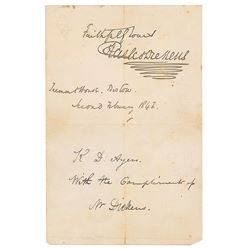 Faithfully Yours
Charles Dickens
Tremont House, Boston.
Second February 1842.
K. D. Ayers.
With the Compliments of
Mr Dickens.